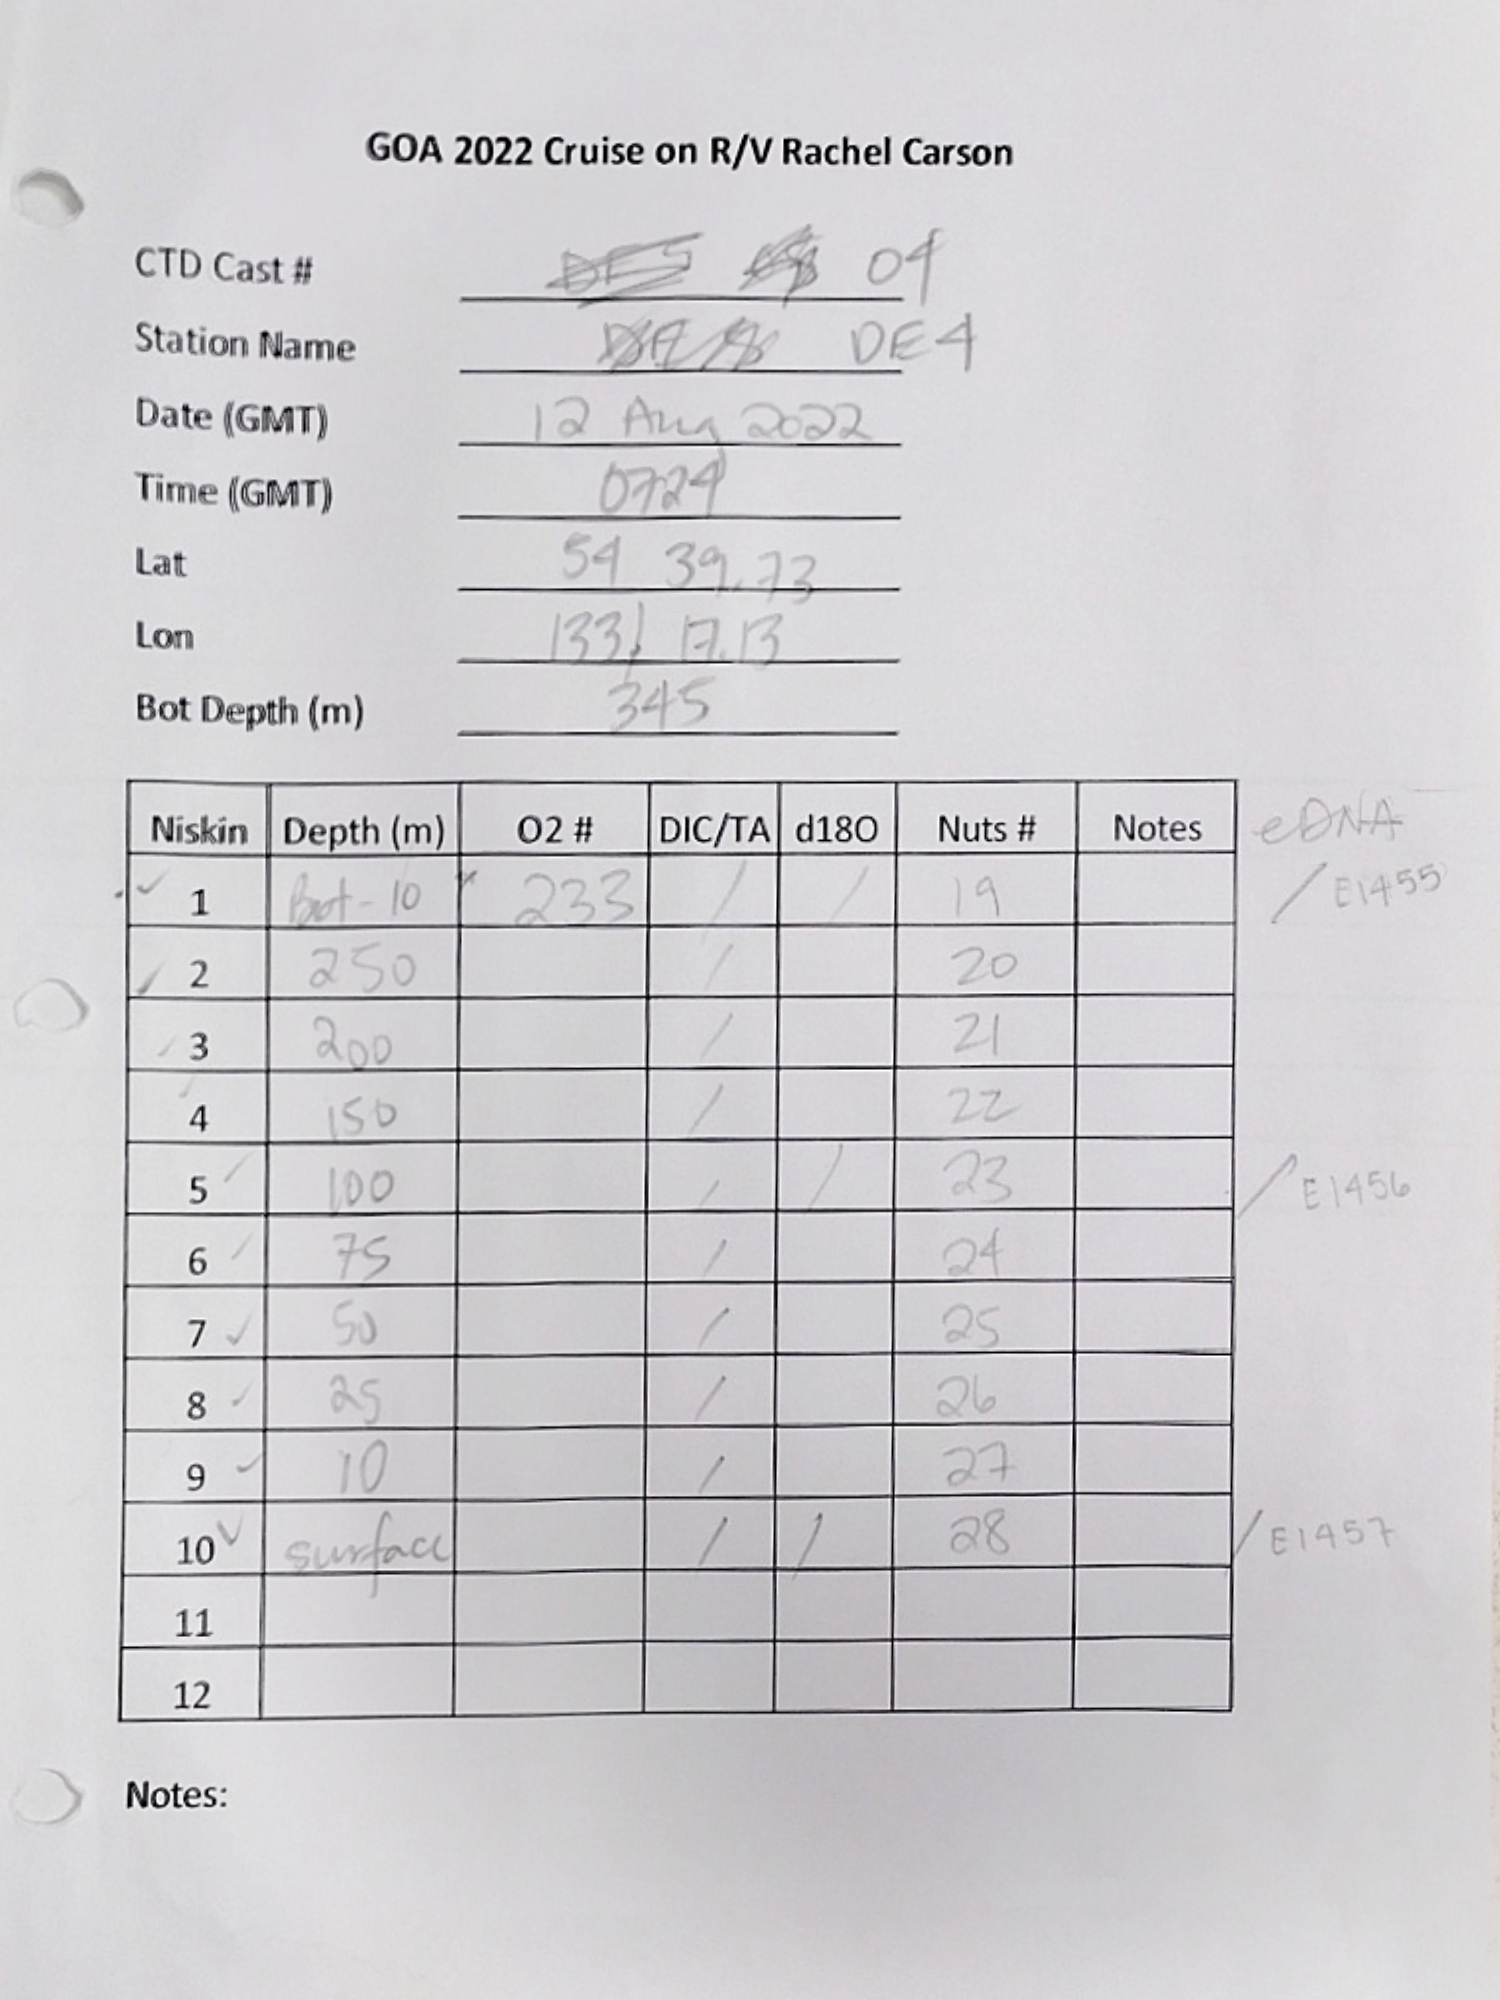 GOA 2022 Cruise on R/V Rachel Carson
CTD Cast # 04
Station Name DE4
Date (GMT) 12 Aug 2022
Time (GMT) 0724
Lat 54 39.73
Lon 133 17.13
Bot Depth (m) 345
Niskin Depth (m) O2 # DIC/TA d18O Nuts # Notes eDNA
✓ 1 Bot-10 * 233 / / 19 / E1455
✓ 2 250 / 20
✓ 3 200 / 21
/ 4 150 / 22
5 / 100 / / 23 / E1456
6 / 75 / 24
7 ✓ 50 / 25
8 ✓ 25 / 26
9 ✓ 10 / 27
10 ✓ surface / / 28 / E1457
11
12
Notes: